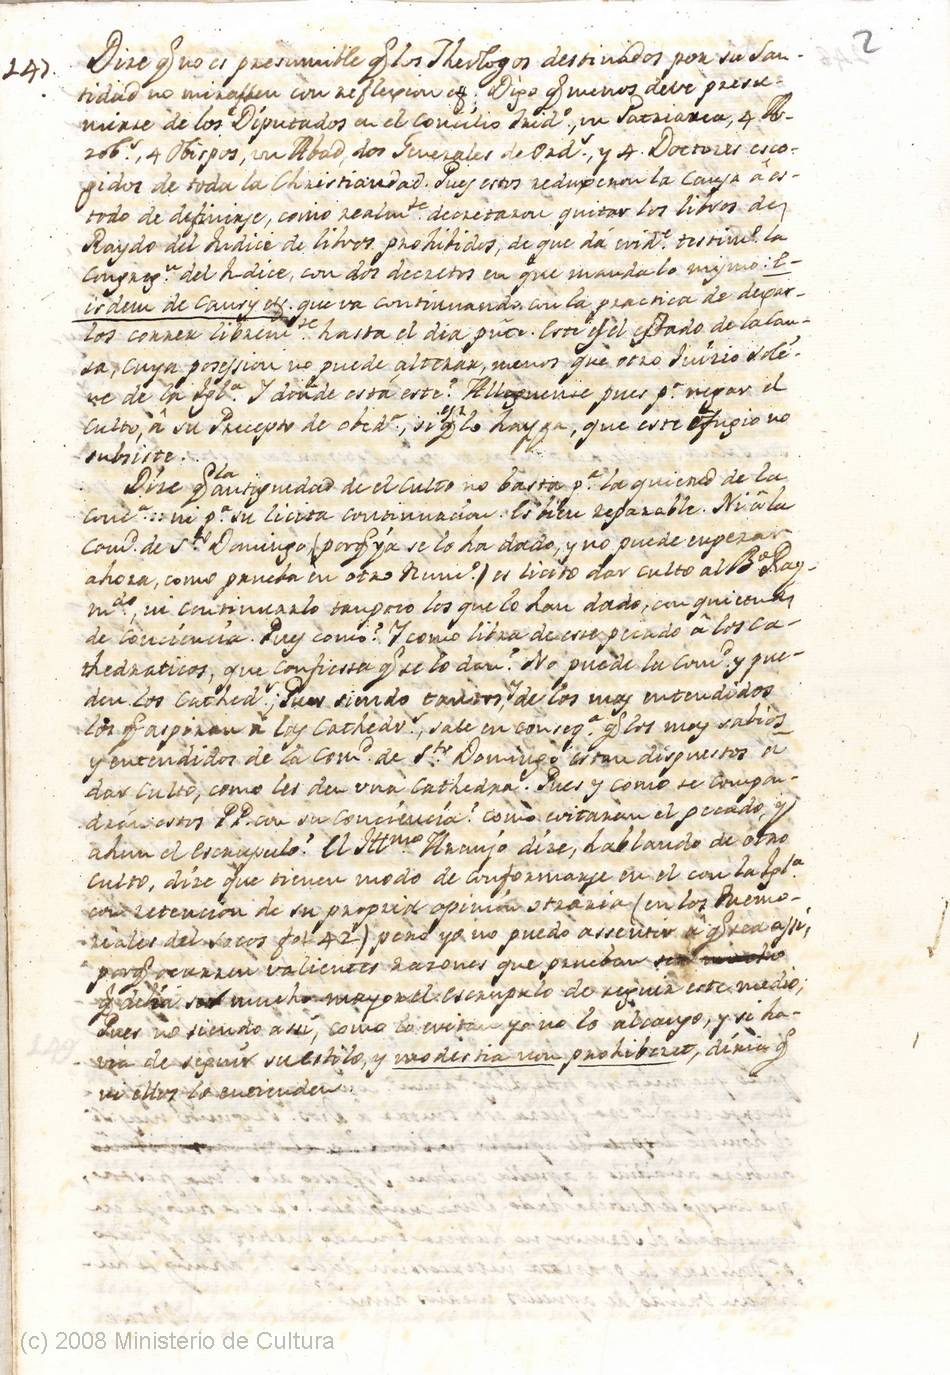 2
247.
Dize q̃ no es presumible q̃ los Theologos destinados por su San-
tidad no mirassen con reflexion &. Digo q̃ menos deve presu-
mirse de los Diputados en el Concilio Trid.º, un Patriarca, 4 Ar-
zob.s, 4 Obispos, un Abad, dos Generales de Ord.s, y 4. Doctores esco-
gidos de toda la Christiandad. Pues estos reduxeron la causa â es-
tado de definirse, como realm.te decretaron quitar los libros de
Raydo del Indice de libros prohibidos, de que dá evid.te testim.º la
Congreg.n del Indice, con dos decretos en que manda lo mismo: E-
isdem de causis &. que va continuando con la practica de dejar-
los correr librem.te hasta el dia pres.te. Este es el estado de la Cau-
sa, cuya possession no puede alterar, menos que otro Juizio solẽ-
ne de la Igl.a. Y donde está este? Alleguense pues p.a negar el
culto, â su Precepto de obed.a, si es q̃ lo haya, que este efugio no
subsiste.
Dize q̃ la antiguedad de el Culto no basta p.a la quietud de la
Conc.a :: ni p.a su licita continuacion. Es bien reparable. Ni â la
Com.d de S.to Domingo (porq̃ ya se lo ha dado, y no puede empezar
ahora, como prueba en otro Num.º) es licito dar culto al B.º Ray-
m.do, ni continuarlo tampoco los que lo han dado, con quietud
de conciencia. Pues como? Y como libra de este pecado â los Ca-
thedraticos, que confiessa q̃ se lo dan? No puede la Com.d y pue-
den los Cathed.s; Pues siendo tantos, y de los mas entendidos
los q̃ aspiran â las Cathedr.s, sale en conseq.a q̃ los mas sabios
y entendidos de la Com.d de S.to Domingo estan dispuestos â
dar culto, como les den una Cathedra. Pues y como se compon-
drán estos PP. con su conciencia? como evitaran el pecado, y
ahun el escrupulo? El Ill.mo Araujo dize, hablando de otro
culto, dize que tienen modo de conformarse en el con la Igl.a
con retencion de su propria opinion contraria (en los Memo-
riales del Sacos fol 42) pero yo no puedo assentir â q̃ sea assi,
porq̃ ocurren valientes razones que prueban
q̃ seria mucho mayor el escrupulo de seguir este medio;
Pues no siendo assi, como lo evitan yo no lo alcanço, y si ha-
via de seguir su estilo, y modestia non prohiberet, diria q̃
ni ellos lo entienden.
(c) 2008 Ministerio de Cultura